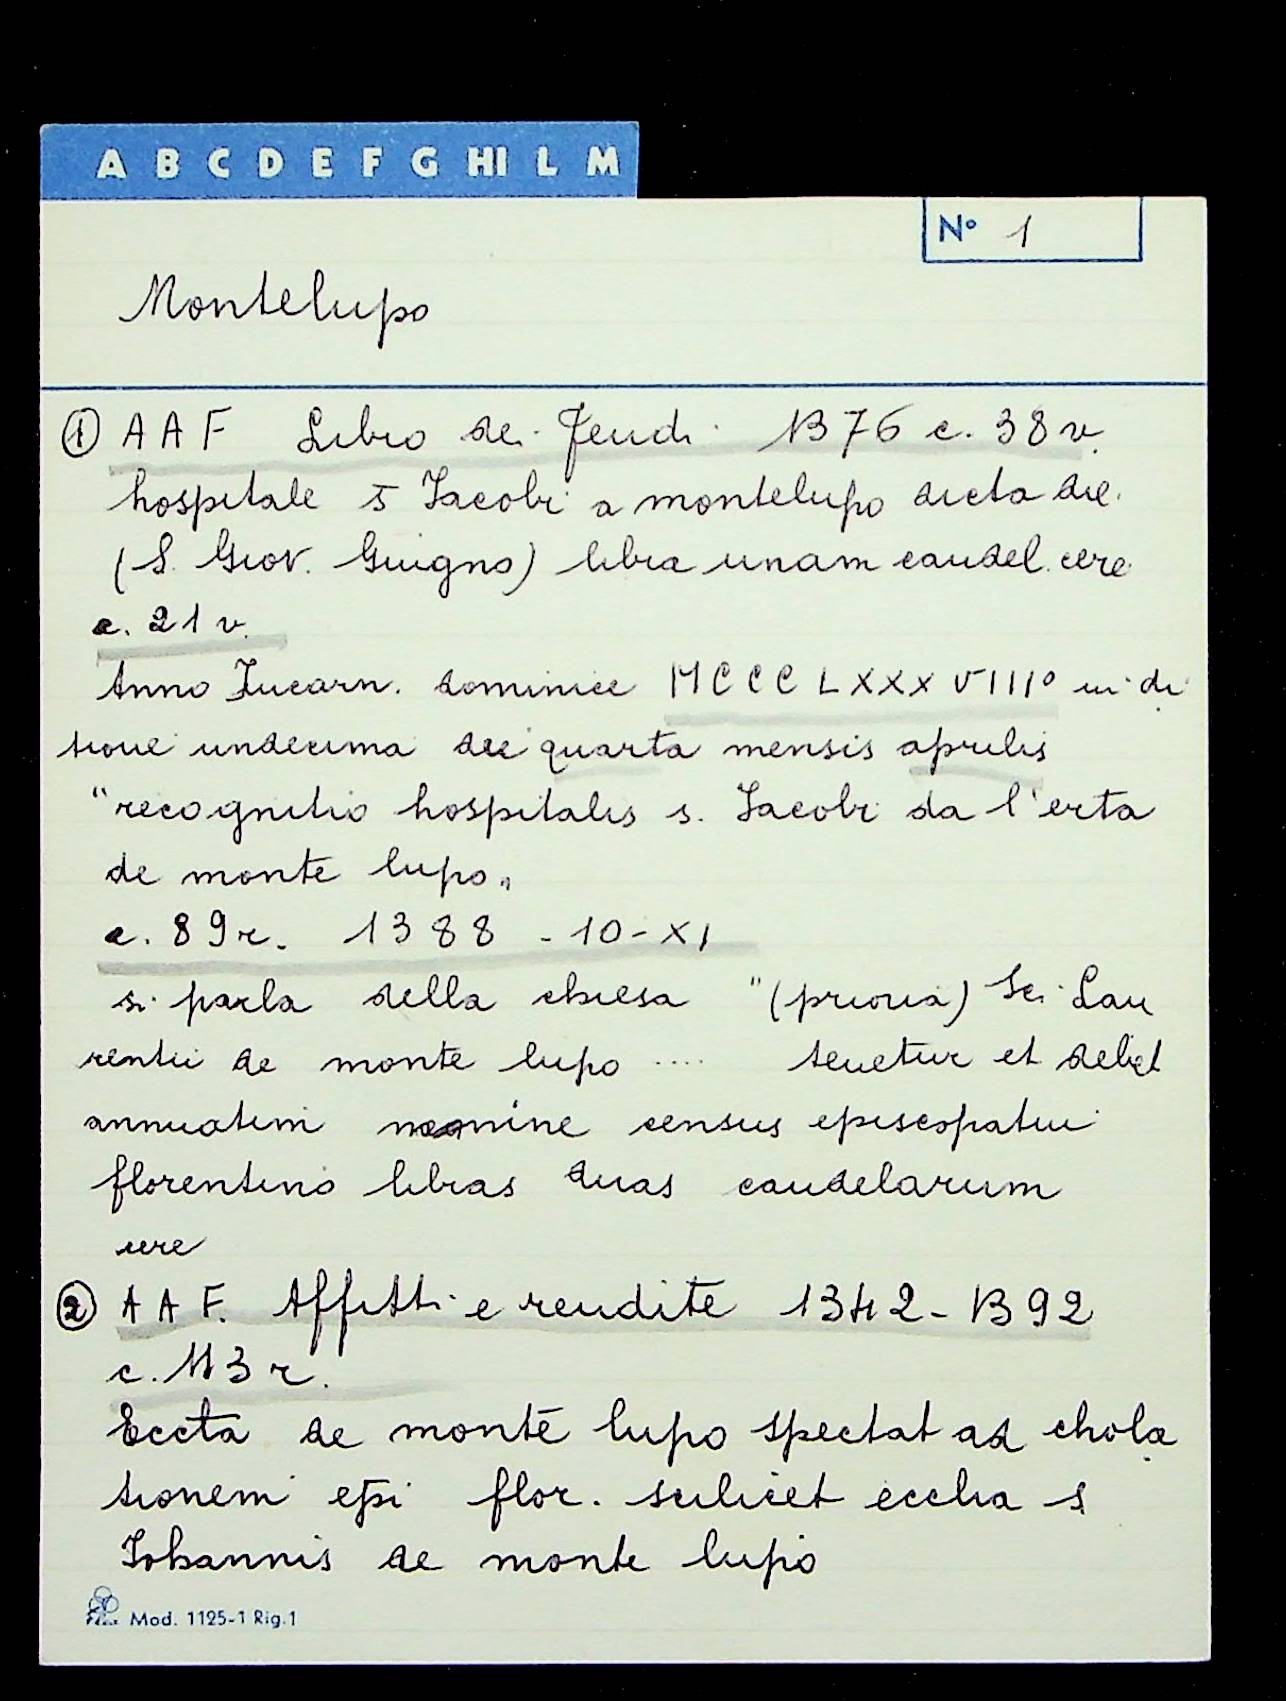 A B C D E F G HI L M
N° 1
Montelupo
① AAF Libro dei feudi B76 c. 38v.
hospitale s̄ Jacobi a montelupo dicta die
(S. Giov. Giugno) libra unam candel. cere
c. 21v.
Anno Incarn. dominice MCCCLXXXVIII° indi
tione undecima die quarta mensis aprilis
"recognitio hospitalis s. Jacobi da l'erta
de monte lupo„
c. 89r. 1388 - 10-XI
si parla della chiesa "(prioria) Sci Lau
rentii de monte lupo .... tenetur et debet
annuatim nomine census episcopatui
florentino libras duas candelarum
cere
② AAF. Affitti e rendite 1342 - B92
c. 113r.
Eccta de monte lupo spectat ad chola
tionem epi flor. scilicet ecclia s
Iohannis de monte lupo
Mod. 1125-1 Rig.1